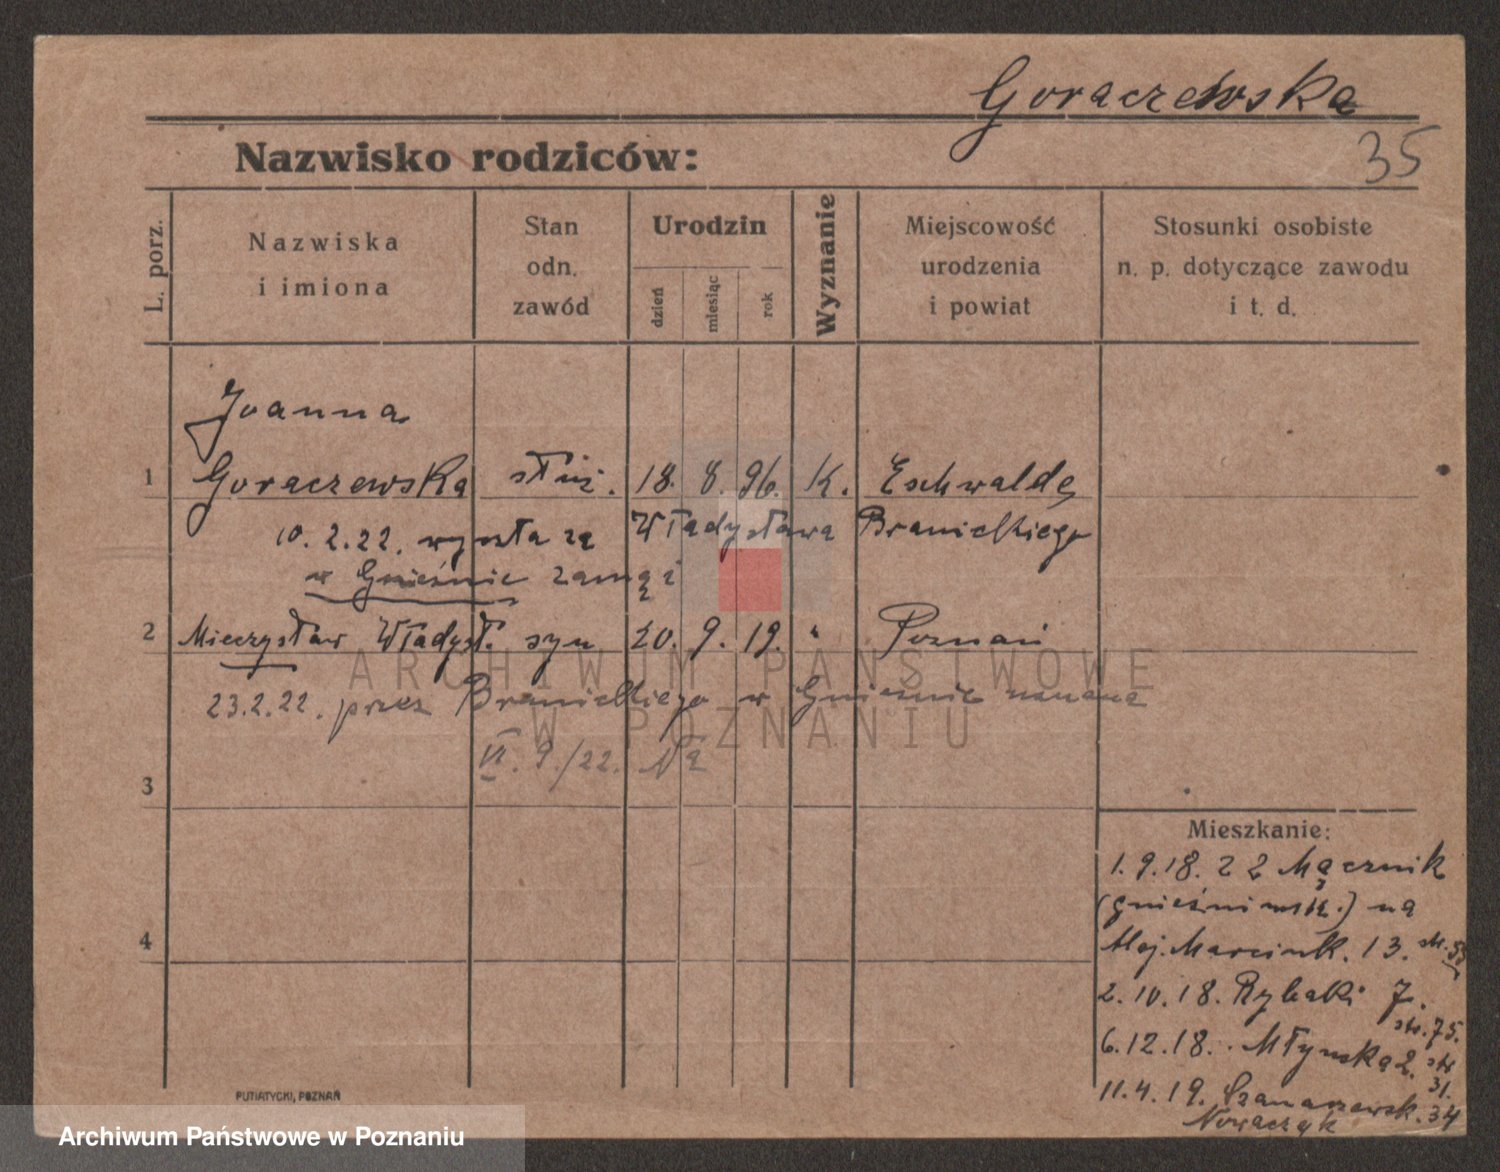 Goraczewska
35
Nazwisko rodziców:
L. porz.
Nazwiska
i imiona
Stan
odn.
zawód
Urodzin
dzień
miesiąc
rok
Wyznanie
Miejscowość
urodzenia
i powiat
Stosunki osobiste
n. p. dotyczące zawodu
i t. d.
Joanna
1 Goraczewska służ. 18. 8. 96. K. Eschwalde
10. 2.22. wyszła za Władysława Branieckiego
w Gnieźnie zamąż
2 Mieczysław Władysł. syn 20. 9. 19. " Poznań
23.2.22. przez Branieckiego w Gnieźnie uznane
VI. 9./22.
3
4
Mieszkanie:
1.9.18. z Mącznik
na
Alej. Marcink. 13. str. 53
2.10.18. Rybaki 7.
str. 75.
6.12.18. Młyńska 2. str
31.
11.4.19. Szamarzewsk. 34
Nowaczyk
PUTIATYCKI, POZNAŃ
ARCHIWUM PAŃSTWOWE
W POZNANIU
Archiwum Państwowe w Poznaniu